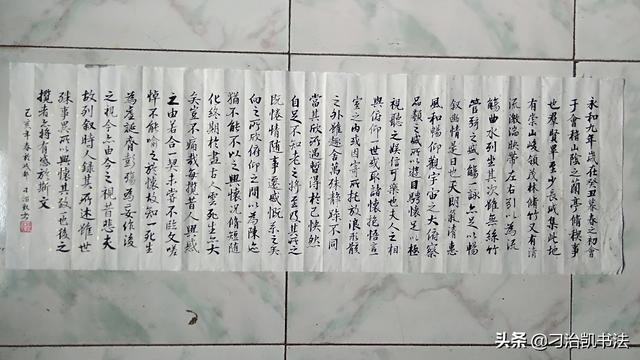 永和九年歲在癸丑暮春之初會
于會稽山陰之蘭亭脩稧事
也羣賢畢至少長咸集此地
有崇山峻領茂林脩竹又有清
流激湍映帶左右引以為流
觴曲水列坐其次雖無絲竹
管弦之盛一觴一詠亦足以暢
叙幽情是日也天朗氣清惠
風和暢仰觀宇宙之大俯察
品類之盛所以遊目騁懷足以極
視聽之娛信可樂也夫人之相
與俯仰一世或取諸懷抱悟言一
室之內或因寄所託放浪形骸
之外雖趣舍萬殊靜躁不同
當其欣於所遇暫得於己怏然
自足不知老之將至及其所之
既惓情隨事遷感慨系之矣
向之所欣俯仰之間以為陳迹
猶不能不以之興懷況脩短隨
化終期於盡古人云死生亦大
矣豈不痛哉每攬昔人興感
之由若合一契未嘗不臨文嗟
悼不能喻之於懷固知一死生
為虛誕齊彭殤為妄作後
之視今亦由今之視昔悲夫
故列叙時人錄其所述雖世
殊事異所以興懷其致一也後之
攬者亦將有感於斯文
己亥年春於 刁治凱書
头条 @刁治凯书法